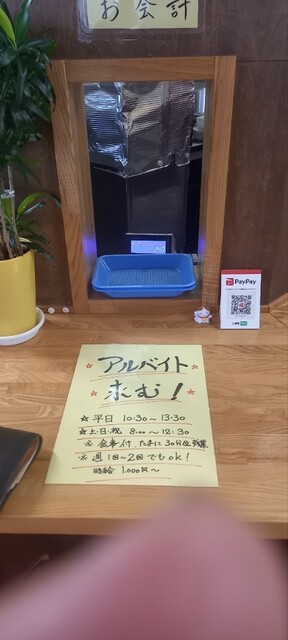 お会計
PayPay
アルバイト
求む!
☆ 平日 10:30~13:30
☆ 土・日・祝 8:00~12:30
※ 食事付、たまに30分位残業
※ 週1回~2回でもok!
時給 1,000円~